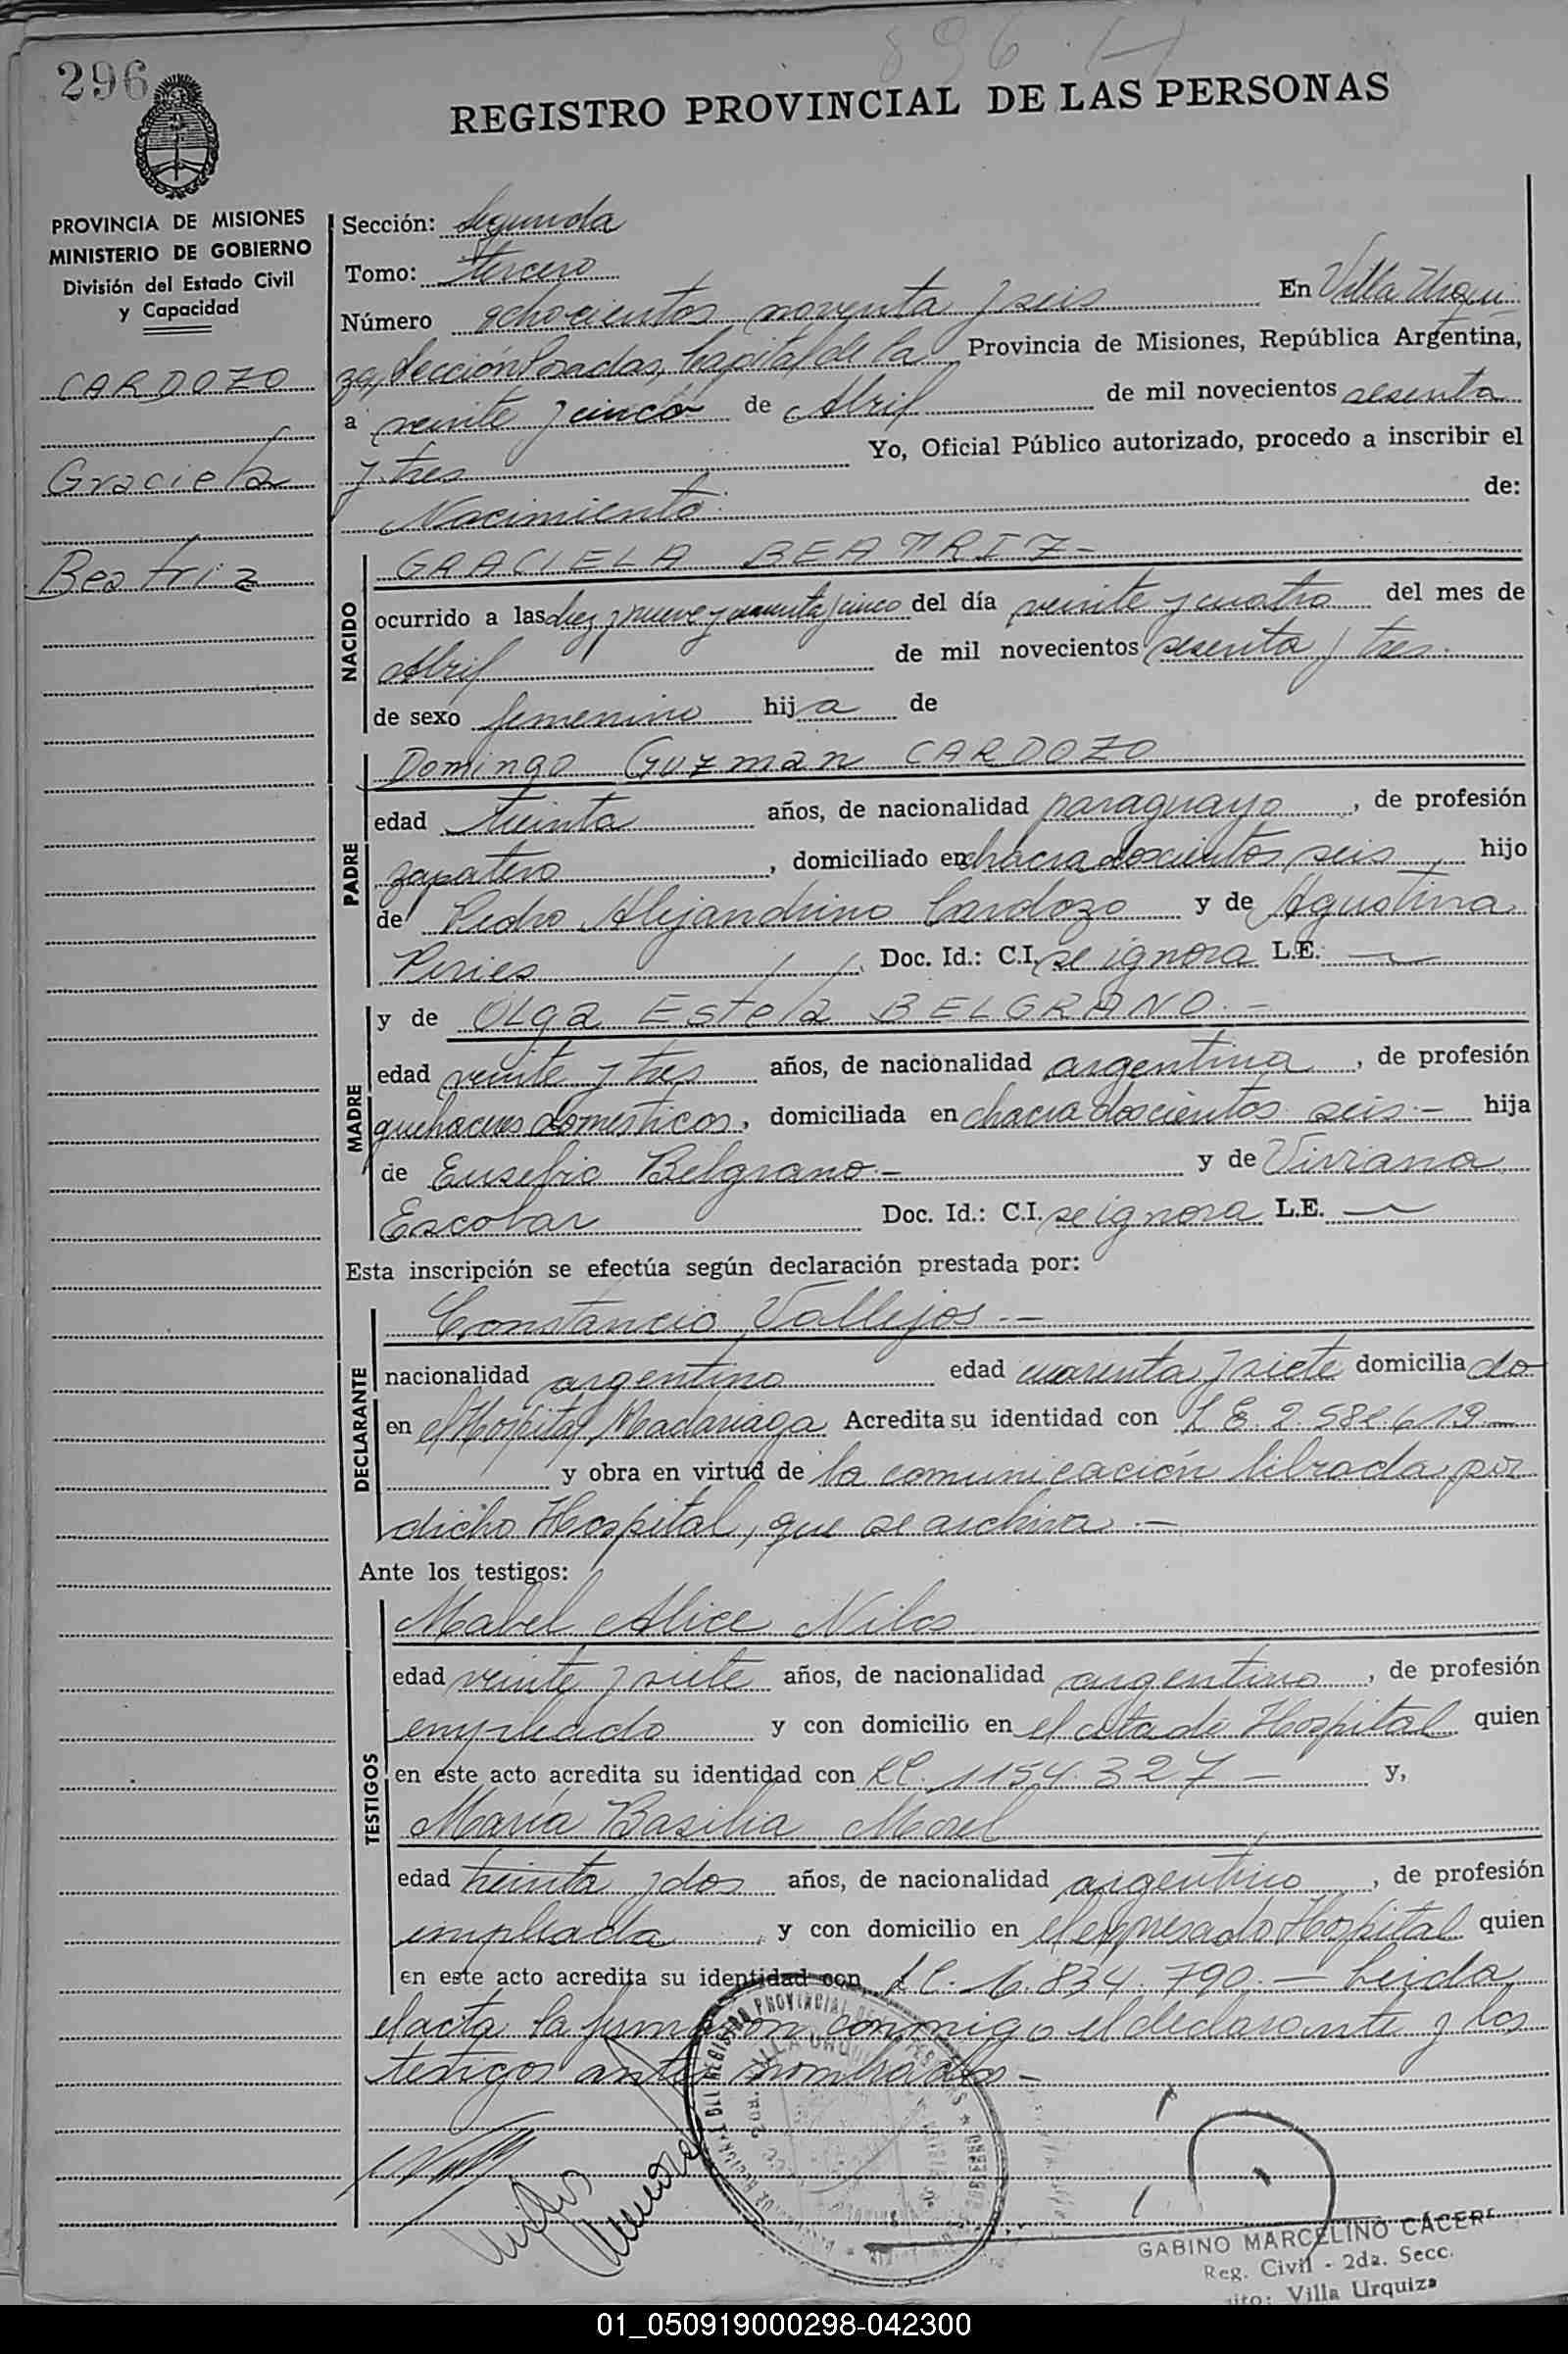 896
296
REGISTRO PROVINCIAL DE LAS PERSONAS
PROVINCIA DE MISIONES
MINISTERIO DE GOBIERNO
División del Estado Civil
y Capacidad
CARDOZO
Graciela
Beatriz
Sección: Segunda
Tomo: tercero
Número ochocientos noventa y seis En Villa Urqui
za, Sección Posadas, Capital de la Provincia de Misiones, República Argentina,
a veinte y cinco de Abril de mil novecientos sesenta
y tres Yo, Oficial Público autorizado, procedo a inscribir el
Nacimiento de:
NACIDO
GRACIELA BEATRIZ-
ocurrido a las diez y nueve y cuarenta y cinco del día veinte y cuatro del mes de
Abril de mil novecientos sesenta y tres.
de sexo femenino hija de
PADRE
Domingo Guzman CARDOZO
edad treinta años, de nacionalidad paraguayo, de profesión
zapatero, domiciliado en chacra doscientos seis hijo
de Pedro Alejandrino Cardozo y de Agustina
Doc. Id.: C.I. se ignora L.E. —
MADRE
y de Olga Estela BELGRANO.-
edad veinte y tres años, de nacionalidad argentina, de profesión
quehaceres domesticos, domiciliada en chacra doscientos seis.- hija
de Eusebio Belgrano.- y de Viviana
Escobar Doc. Id.: C.I. se ignora L.E. —
Esta inscripción se efectúa según declaración prestada por:
DECLARANTE
Constancio Vallejos.-
nacionalidad argentino edad cuarenta y siete domiciliado
en el Hospital Madariaga Acredita su identidad con L E. 2.582.619.-
y obra en virtud de la comunicación librada por
dicho Hospital, que se archiva.-
Ante los testigos:
TESTIGOS
Mabel Alice
edad veinte y siete años, de nacionalidad argentino, de profesión
empleado y con domicilio en el citado Hospital quien
en este acto acredita su identidad con LC. 1154.327- y,
María Basilia Morel
edad treinta y dos años, de nacionalidad argentino, de profesión
empleada y con domicilio en el expresado Hospital quien
en este acto acredita su identidad con LC. 6.834.790.- Leida
el acta la firman con conmigo el declarante y los
testigos antes nombrados-
GABINO MARCELINO CÁCER
Reg. Civil - 2da. Secc.
ito: Villa Urquiza
01_050919000298-042300